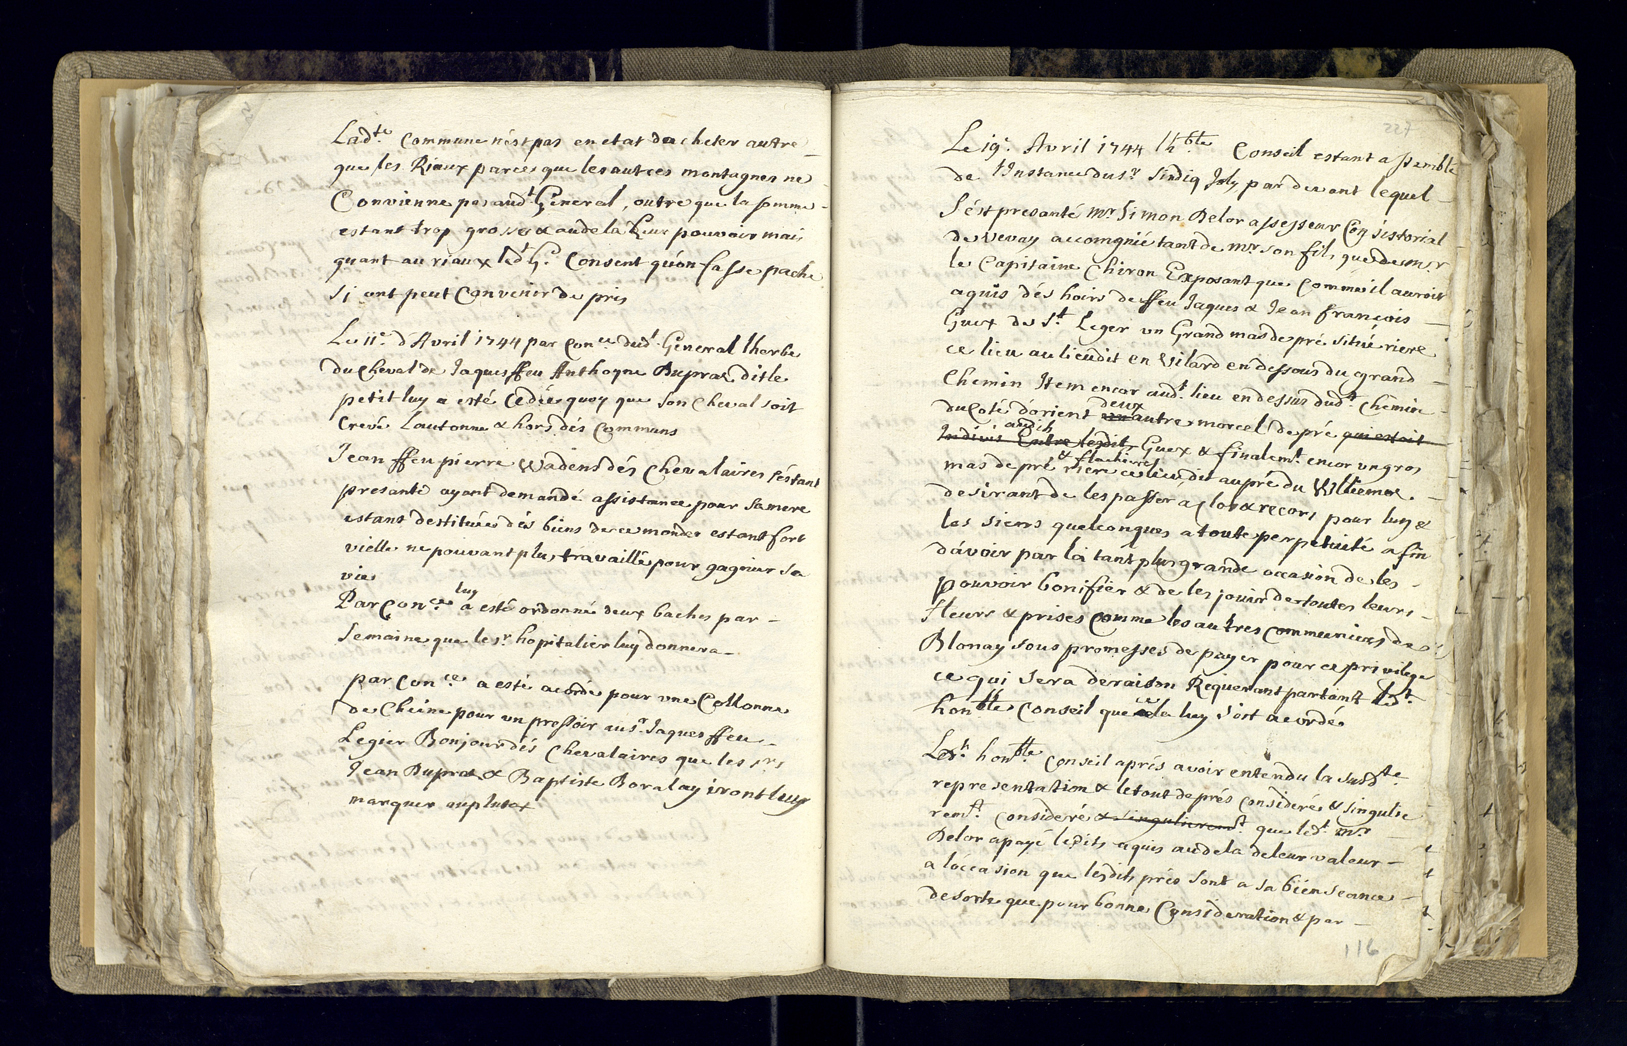 Ladte Commune n'est pas en etat d'acheter autre
que les Riaux parce que les autres montagnes ne
Convienne pas audt General, outre que la somme
estant trop grosse & audela Leur pouvoir mais
quant au riaux ledt Gl Consent qu'on fasse pache
si ont peut Convenir de pris
Le 11e d'Avril 1744 par Conce dudt General lherbe
du Cheval de Jaques ffeu Anthoyne Dupraz dit le
petit luy a esté Cédée quoy que son Cheval soit
Crevé Lautonne & hors dés Communs
Jean ffeu pierre Wadens dés Chevalaires s'éstant
presanté ayant demandé assistance pour sa mere
estant destituée dés biens de ce monde & estant fort
vielle ne pouvant plus travaillé pour gagnier sa
vie
Par Conce luy a esté ordonné deux baches par
Semaine que le sr hopitalier luy donnera
par Conce a esté acordé pour une Collonne
de Chéne pour un pressoir au sr Jaques ffeu
Legier Bonjour dés Chevalaires que les srs
Jean Dupraz & Baptiste Boralay iront luy
marquer au plutox
227
Le 19e Avril 1744 lhble Conseil estant assemblé
de l'Instance du sr Sindiq Joly par devant lequel
S'ést presanté mr Simon Delor assesseur Consistorial
de Vevay accompnié tant de mr son fils que de mr
le Capitaine Chiron Exposant que Comme il auroit
aquis dés hoirs de ffeu Jaques & Jean françois
Guex de St Leger un Grand mas de pré situé riere
ce lieu au lieudit en Vilard en dessous du grand
Chemin Item encor audt lieu en dessus dudt Chemin
du Coté d'orient un deux autre morcel de pré qui estoit
Indivis Entre lesdits audits Guex & finalemt encor un gros
mas de pré & flachieres riere ce lieu, dit au pré du Villiemoz
desirant de les passer a clos & record pour luy &
les siens quelconques a toute perpetuité afin
d'avoir par la tant plus grande occasion de les
pouvoir bonifier & de les jouir de toutes leurs
fleurs & prises Comme les autres Communiers de
Blonay sous promesses de payer pour ce privilege
ce qui sera de raison Requerant partant led.t
honble Conseil que cela luy soit acordé
Ledt honble Conseil aprés avoir entendu la susdte
representation & le tout de prés Consideré & singulie
remt Consideré & singulieremt que ledt mr
Delor a payé lesdits aquis audela de leur valeur
a l'occasion que lesdits prés sont a sa bienseance
de sorte que pour bonne Consideration & par
116